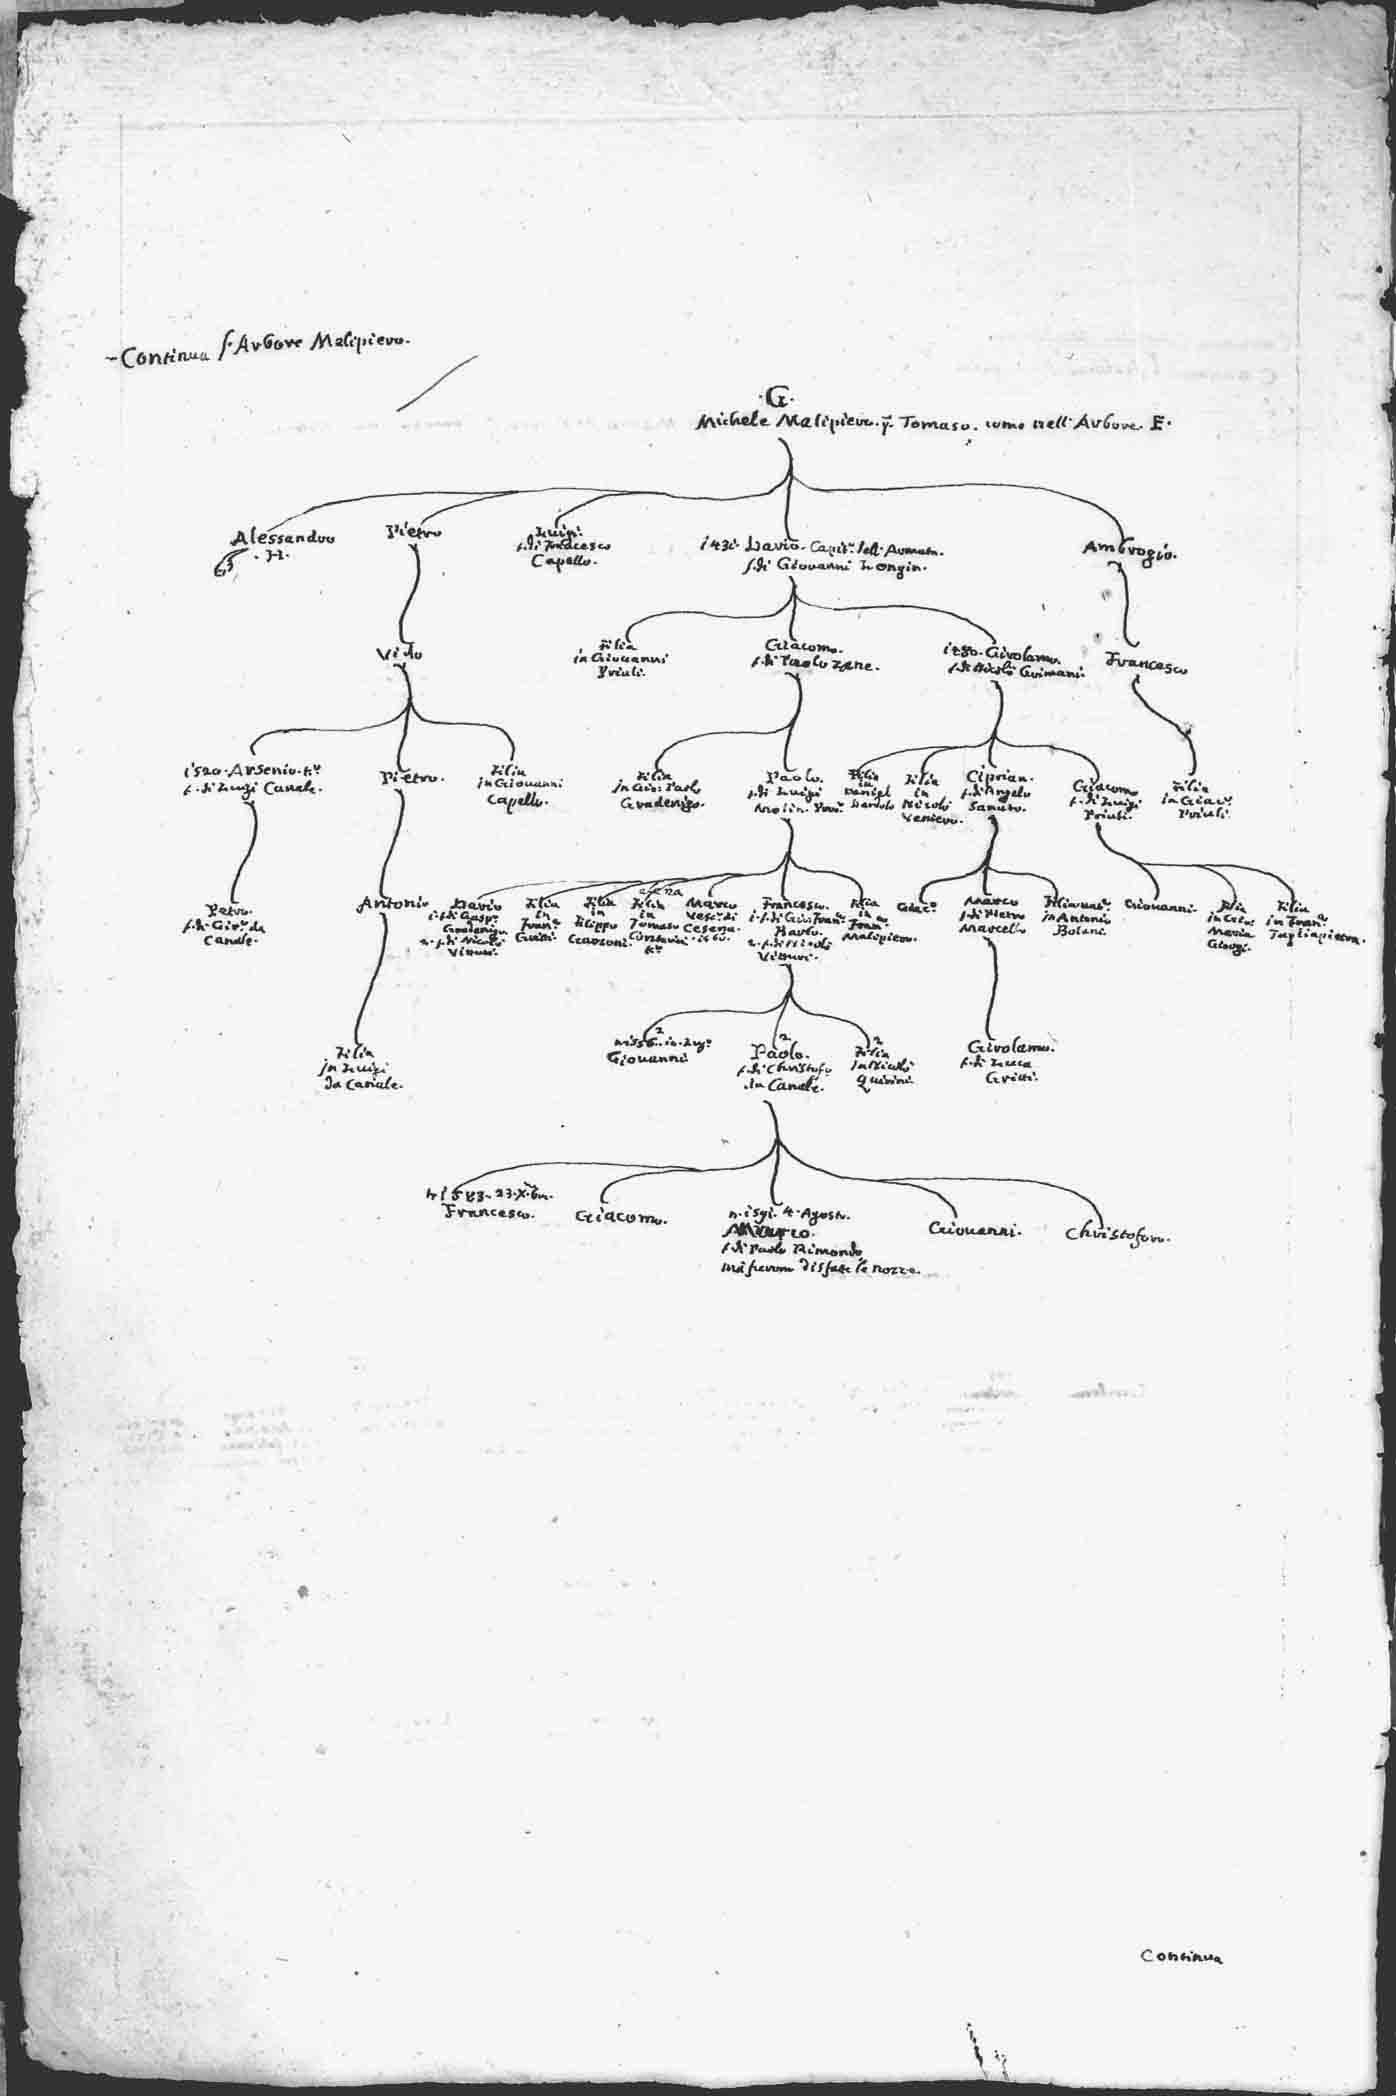 Continua l'Arbore Malipiero.
.G.
Michele Malipiero. q. Tomaso. come nell'Arbore. E.
Alessandro
.H.
Pietro
Luigi
f. di Francesco
Capello.
1431. Dario. Capit.º dell'Armata.
f. di Giovanni Longin.
Ambrogio.
Vido
Filia
in Giovanni
Priuli.
Giacomo.
f. di Paolo Zane.
1480. Girolamo.
f. di Nicolò Grimani.
Francesco
1520. Arsenio. K.r
f. di Luigi Canale.
Pietro.
Filia
in Giovanni
Capello.
Filia
in Gio: Paolo
Gradenigo.
Paolo.
f. di Luigi
Molin.
Filia
in
Daniel
Dandolo
Filia
in
Nicolò
Veniero.
Ciprian.
f. di Angelo
Sanuto.
Giacomo
f. di Luigi
Priuli.
Filia
in Giac.º
Priuli.
Petro.
f. di Gir.º da
Canale.
Antonio
Dario
1. f. di Gasp.º
Gradenigo
2. f. di Nicolò
Vitturi.
Filia
in
Fran.º
Gritti.
Filia
in
Filippo
Garzoni.
elena
Filia
in
Tomaso
Contarini
K.r
Marco
Vesc.º di
Cesena
Francesco.
1. f. di Gio: Fran.º
Barbo.
2. f. di Nicolò
Vitturi.
Filia
in
Fran.º
Malipiero.
Giac.º
Marco
f. di Pietro
Marcello
in Antonio
Bolani.
Giovanni.
Filia
in
Maria
Giorgi.
Filia
in Fran.º
Tagliapietra.
Filia
in Luigi
da Canale.
Giovanni
2
Paolo.
f. di Christofo
da Canale.
2
Filia
in Nicolò
Quirini.
Girolamo.
f. di Luca
Gritti.
n. 1583. 23. Xbre.
Francesco.
Giacomo.
n. 1591. 4. Agosto.
Marco.
f. di Paolo Rimondo
ma furono disfatte le nozze.
Giovanni.
Christoforo.
Continua